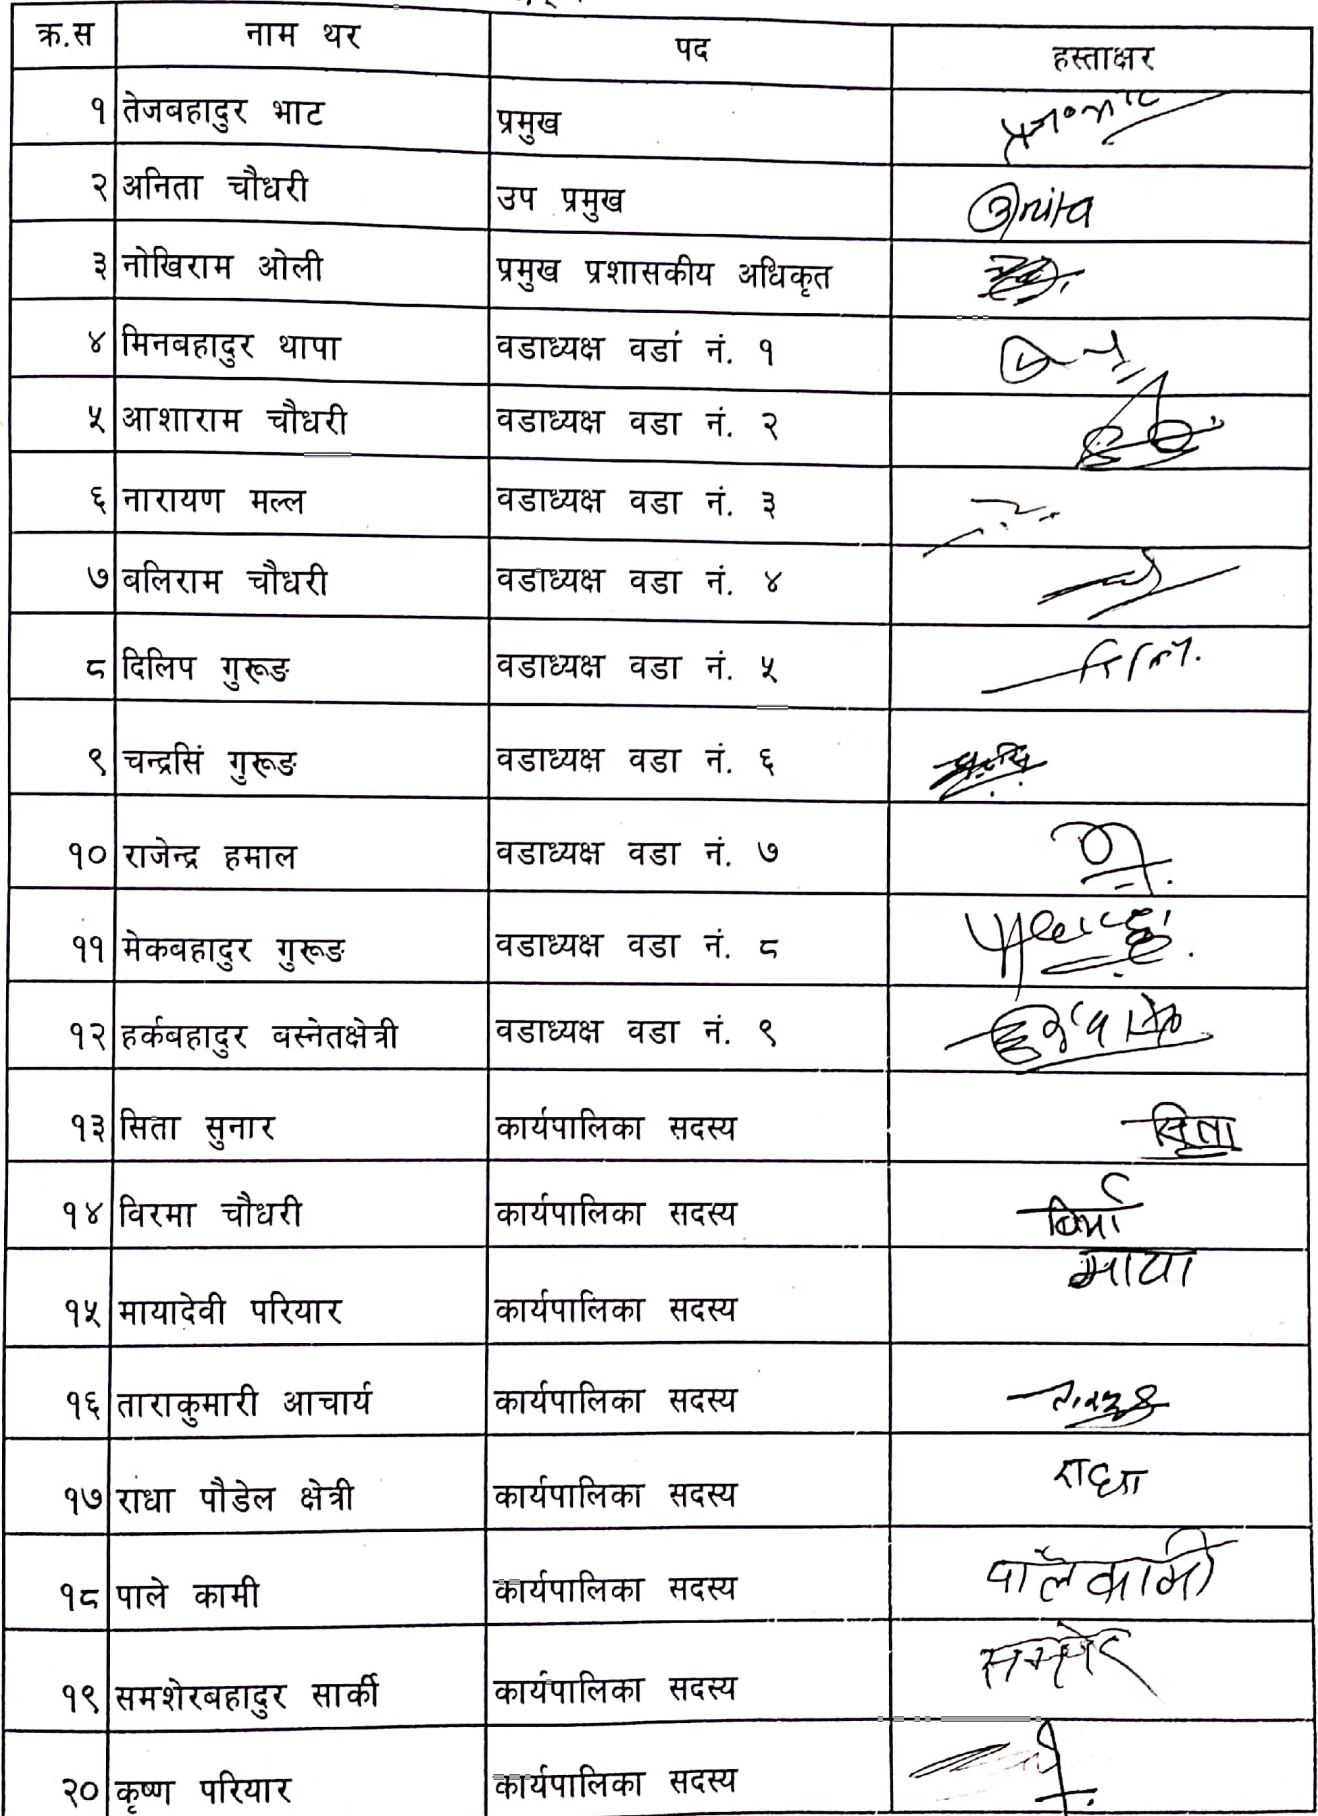 क्र.स नाम थर पद हस्ताक्षर
१ तेजबहादुर भाट प्रमुख
२ अनिता चौधरी उप प्रमुख Anita
३ नोखिराम ओली प्रमुख प्रशासकीय अधिकृत
४ मिनबहादुर थापा वडाध्यक्ष वडां नं. १
५ आशाराम चौधरी वडाध्यक्ष वडा नं. २
६ नारायण मल्ल वडाध्यक्ष वडा नं. ३
७ बलिराम चौधरी वडाध्यक्ष वडा नं. ४
८ दिलिप गुरूङ वडाध्यक्ष वडा नं. ५
९ चन्द्रसिं गुरूङ वडाध्यक्ष वडा नं. ६
१० राजेन्द्र हमाल वडाध्यक्ष वडा नं. ७
११ मेकबहादुर गुरूङ वडाध्यक्ष वडा नं. ८
१२ हर्कबहादुर वस्नेतक्षेत्री वडाध्यक्ष वडा नं. ९
१३ सिता सुनार कार्यपालिका सदस्य सिता
१४ विरमा चौधरी कार्यपालिका सदस्य बिर्मा
१५ मायादेवी परियार कार्यपालिका सदस्य माया
१६ ताराकुमारी आचार्य कार्यपालिका सदस्य
१७ राधा पौडेल क्षेत्री कार्यपालिका सदस्य राधा
१८ पाले कामी कार्यपालिका सदस्य पाले कामी
१९ समशेरबहादुर सार्की कार्यपालिका सदस्य समशेर
२० कृष्ण परियार कार्यपालिका सदस्य